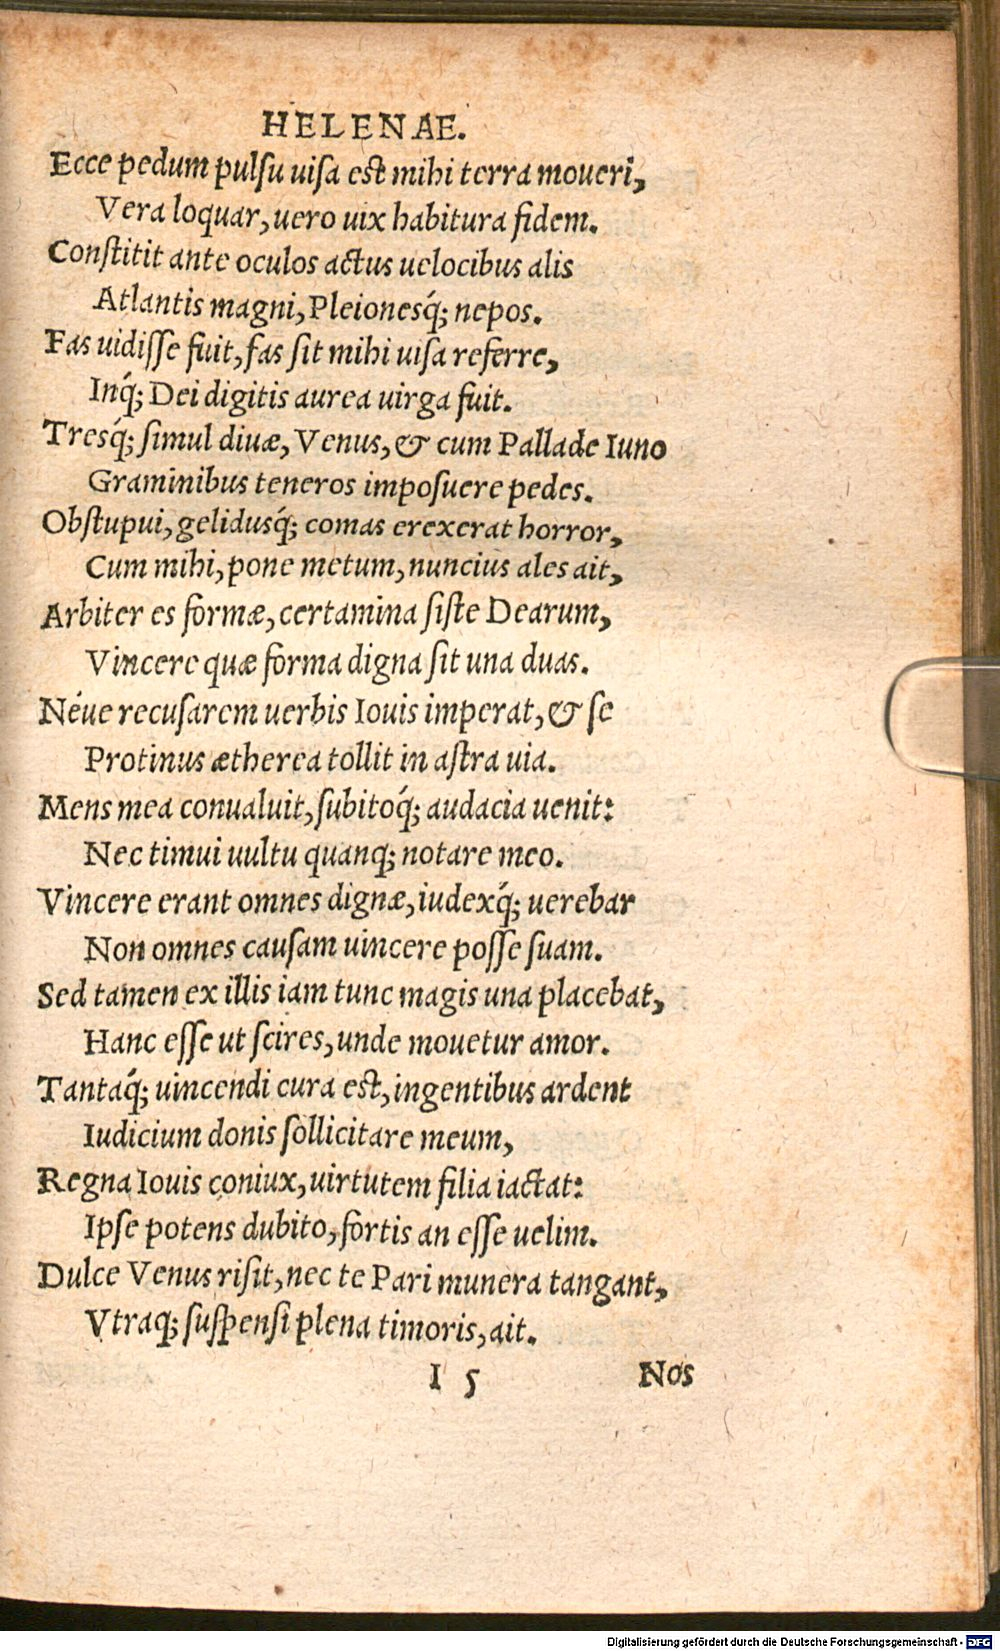 HELENAE.
Ecce pedum pulsu uisa est mihi terra moueri,
Vera loquar, uero uix habitura fidem.
Constitit ante oculos actus uelocibus alis
Atlantis magni, Pleionesq́; nepos.
Fas uidisse fuit, fas sit mihi uisa referre,
Inq́; Dei digitis aurea uirga fuit.
Tresq́; simul diuæ, Venus, & cum Pallade Iuno
Graminibus teneros imposuere pedes.
Obstupui, gelidusq́; comas erexerat horror,
Cum mihi, pone metum, nuncius ales ait,
Arbiter es formæ, certamina siste Dearum,
Vincere quæ forma digna sit una duas.
Néue recusarem uerbis Iouis imperat, & se
Protinus ætherea tollit in astra uia.
Mens mea conualuit, subitoq́; audacia uenit:
Nec timui uultu quanq; notare meo.
Vincere erant omnes dignæ, iudexq́; uerebar
Non omnes causam uincere posse suam.
Sed tamen ex illis iam tunc magis una placebat,
Hanc esse ut scires, unde mouetur amor.
Tantaq́; uincendi cura est, ingentibus ardent
Iudicium donis sollicitare meum,
Regna Iouis coniux, uirtutem filia iactat:
Ipse potens dubito, fortis an esse uelim.
Dulce Venus risit, nec te Pari munera tangant,
Vtraq; suspensi plena timoris, ait.
I 5 Nos
Digitalisierung gefördert durch die Deutsche Forschungsgemeinschaft - DFG